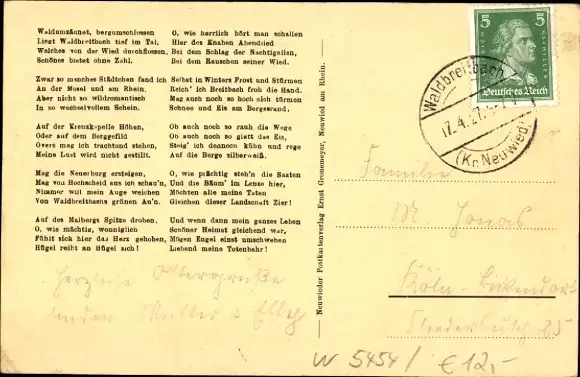 Waldumzäunt, bergumschlossen
Liegt Waldbreitbach tief im Tal,
Welches von der Wied durchflossen,
Schönes bietet ohne Zahl.
Zwar so manches Städtchen fand ich
An der Mosel und am Rhein.
Aber nicht so wildromantisch
In so wechselvollem Schein.
Auf der Kreuzkapelle Höhen,
Oder auf dem Berggefild
Overs mag ich trachtend stehen,
Meine Lust wird nicht gestillt.
Mag die Neuerburg ersteigen,
Mag von Hochscheid aus ich schau'n,
Nimmer will mein Auge weichen
Von Waldbreitbachs grünen Au'n.
Auf des Malbergs Spitze droben,
O, wie mächtig, wonniglich
Fühlt sich hier das Herz gehoben,
Hügel reiht an Hügel sich!
O, wie herrlich hört man schallen
Hier des Knaben Abendlied
Bei dem Schlag der Nachtigallen,
Bei dem Rauschen seiner Wied.
Selbst in Winters Frost und Stürmen
Reich' ich Breitbach froh die Hand.
Mag auch noch so hoch sich türmen
Schnee und Eis am Bergesrand.
Ob auch noch so rauh die Wege
Ob auch noch so glatt das Eis,
Steig' ich dennoch kühn und rege
Auf die Berge silberweiß.
O, wie prächtig steh'n die Saaten
Und die Bäum' im Lenze hier,
Möchten alle meine Taten
Gleichen dieser Landschaft Zier!
Und wenn dann mein ganzes Leben
Schöner Heimat gleichend war,
Mögen Engel einst umschweben
Liebend meine Totenbahr!
Herzliche Ostergrüße
senden Mutter &
Neuwieder Postkartenverlag Ernst Gronemeyer, Neuwied am Rhein.
5 5
Deutsches Reich
Waldbreitbach
17.4.27
(Kr. Neuwied)
Familie
M Jonas
Köln-Bickendorf
25
W 5454 / € 12,-